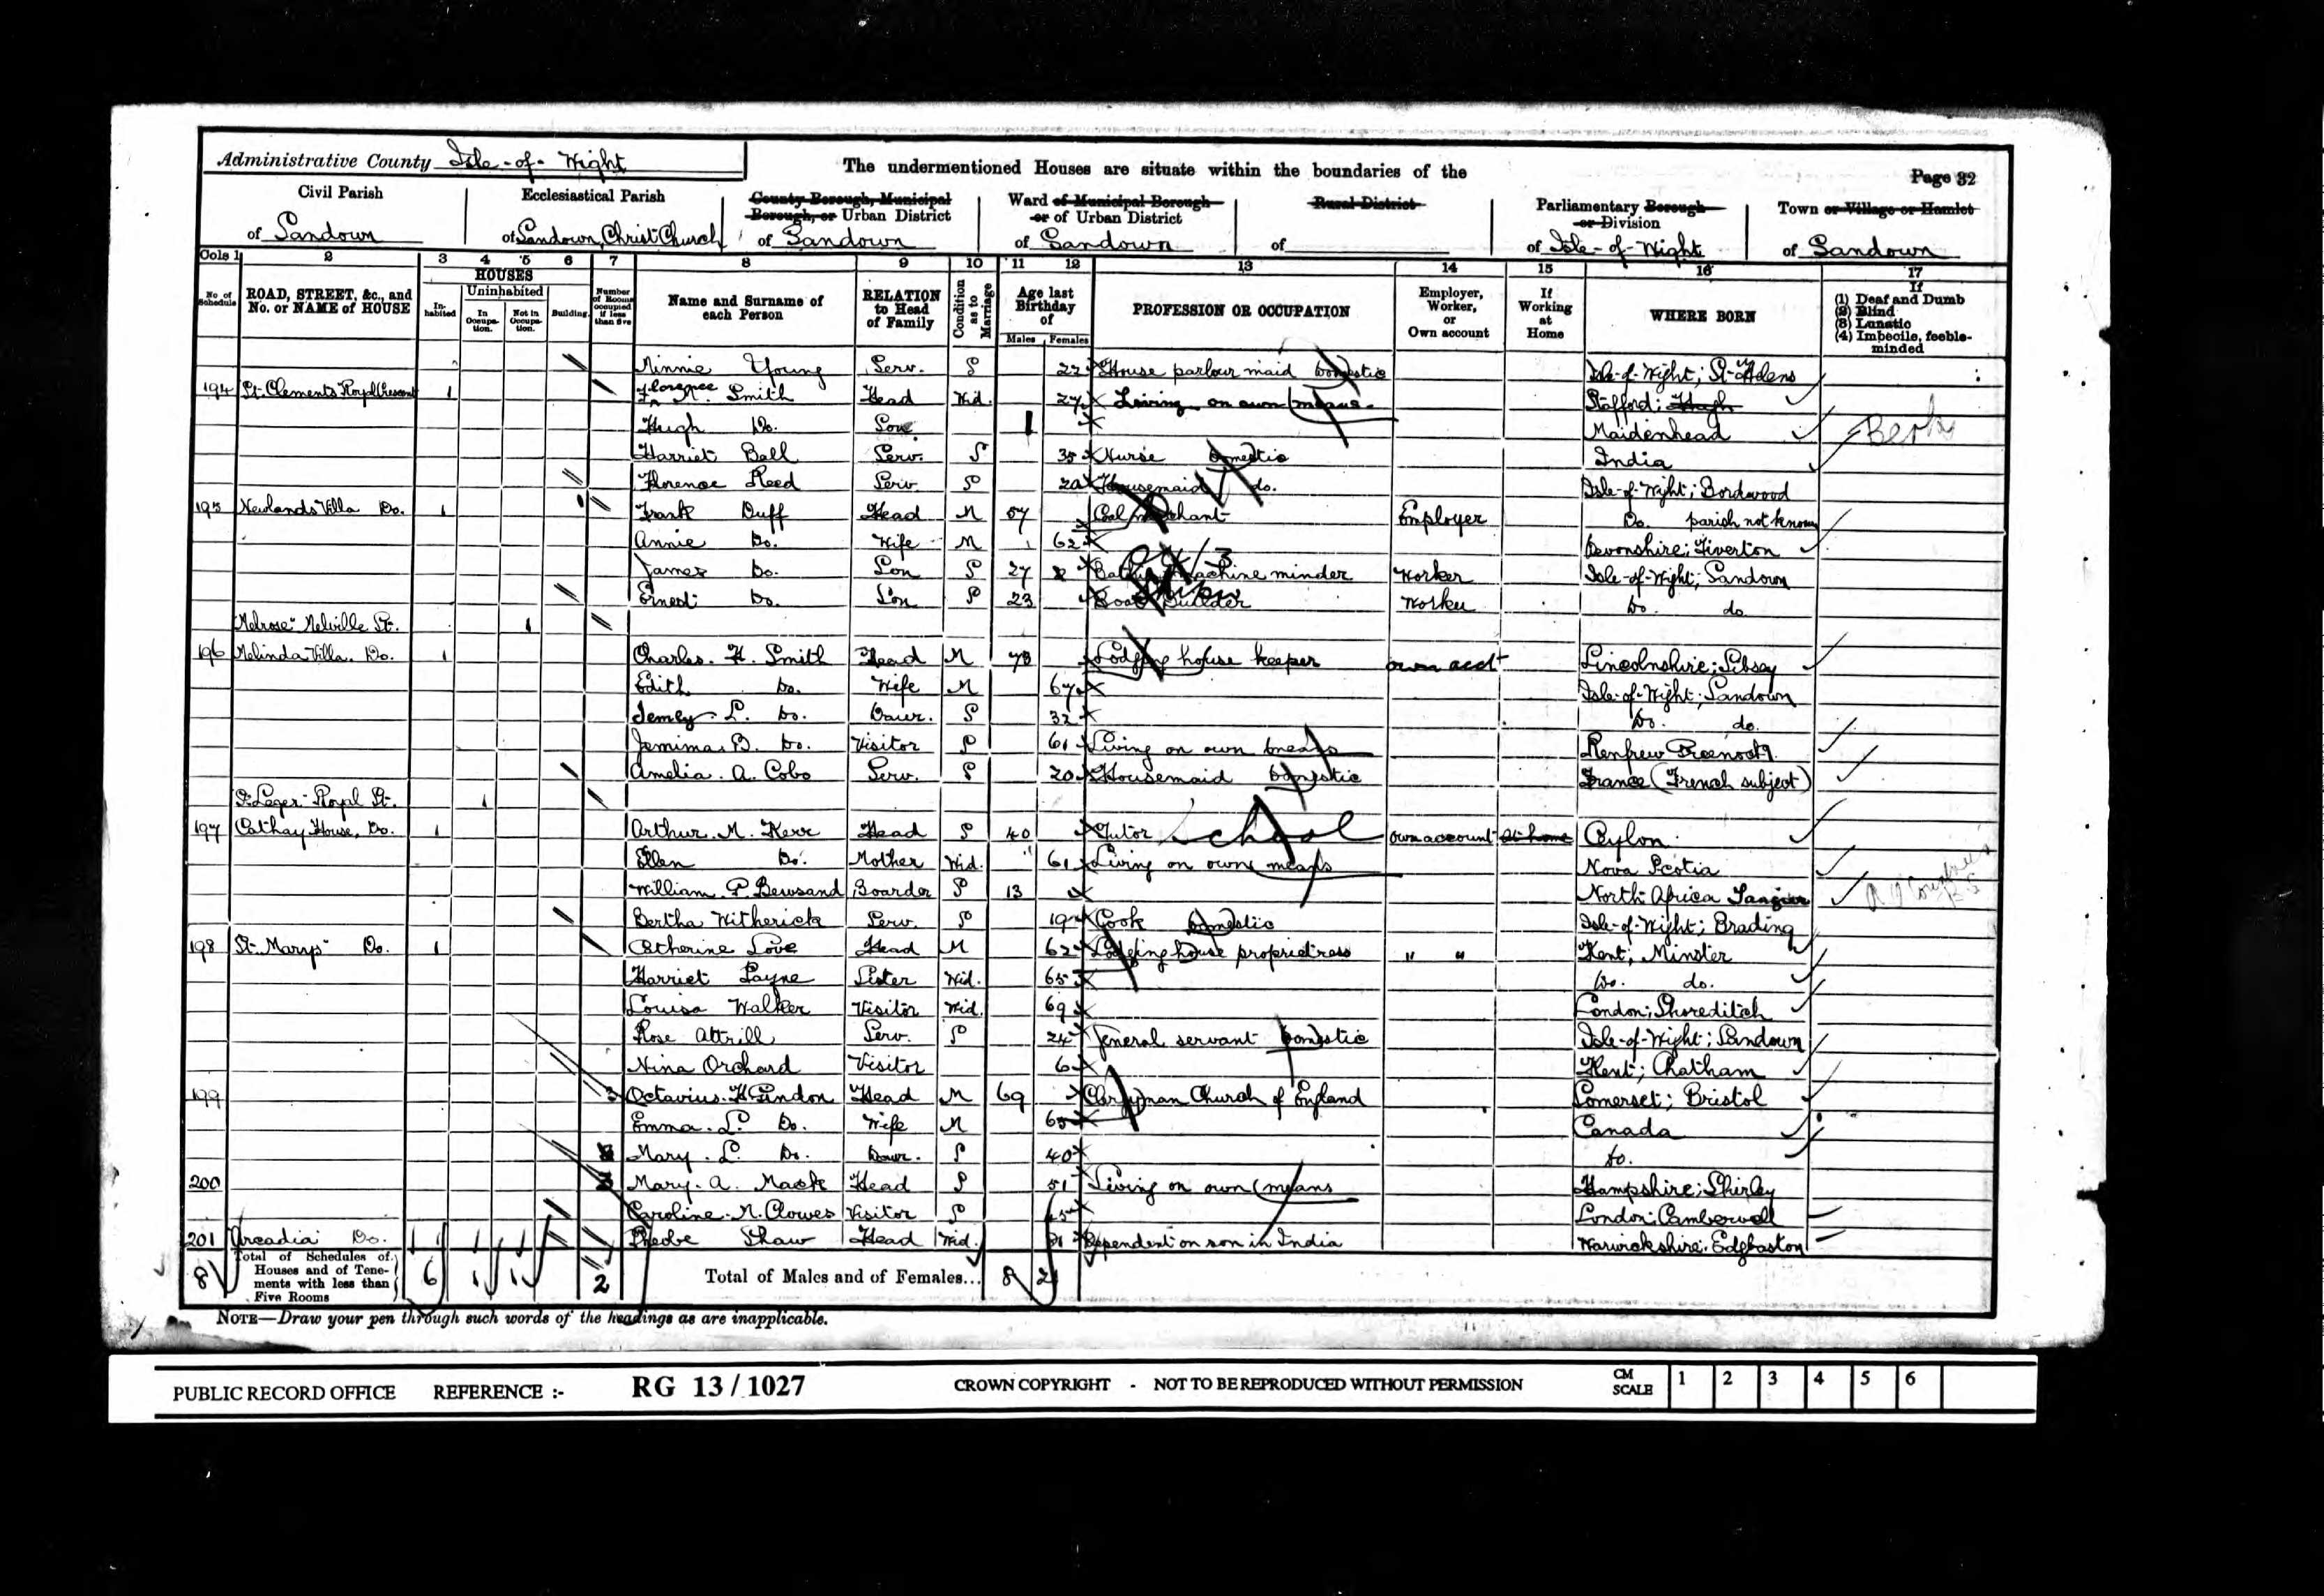 Administrative County Isle-of-Wight
The undermentioned Houses are situate within the boundaries of the
Page 32
Civil Parish of Sandown
Ecclesiastical Parish of Sandown, Christ Church
County Borough, Municipal Borough, or Urban District of Sandown
Ward of Municipal Borough or of Urban District of Sandown
Rural District of
Parliamentary Borough or Division of Isle-of-Wight
Town or Village or Hamlet of Sandown
Cols 1 2 3 4 5 6 7 8 9 10 11 12 13 14 15 16 17
No of Schedule
ROAD, STREET, &c., and No. or NAME of HOUSE
HOUSES
Inhabited
Uninhabited
In Occupation.
Not in Occupation.
Building.
Number of Rooms occupied if less than five
Name and Surname of each Person
RELATION to Head of Family
Condition as to Marriage
Age last Birthday of
Males Females
PROFESSION OR OCCUPATION
Employer, Worker, or Own account
If Working at Home
WHERE BORN
If
(1) Deaf and Dumb
(2) Blind
(3) Lunatic
(4) Imbecile, feeble-minded
Minnie Young Serv. S 22 House parlour maid Domestic Isle-of-Wight; St Helens
194 St. Clements Royal Crescent 1 Florence M. Smith Head Wid. 27 Living on own means Stafford; Hugh
Hugh Do. Son 1 Maidenhead Berk
Harriet Ball Serv. S 35 Nurse Domestic India
Florence Reed Serv. S 20 Housemaid do. Isle-of-Wight; Bordwood
195 Newlands Villa Do. 1 Frank Duff Head M 57 Coal merchant Employer Do. parish not known
Annie Do. Wife M 62 Devonshire; Tiverton
James Do. Son S 27 machine minder Worker Isle-of-Wight; Sandown
Ernest Do. Son S 23 Boat Builder Worker Do. do
"Melrose" Melville St. 1
196 Melinda Villa. Do. 1 Charles. H. Smith Head M 73 Lodging house keeper own acct Lincolnshire; Sibsey
Edith Do. Wife M 67 Isle-of-Wight; Sandown
L. Do. Daur. S 32 Do. do.
Jemima. B. Do. Visitor S 61 Living on own means Renfrew Greenock
Amelia. A. Cobo Serv. S 20 Housemaid Domestic France (French subject)
St. Leger Royal St. 1
197 Cathay House, Do. 1 Arthur. M. Kerr Head S 40 Tutor School own account at home Ceylon
Ellen Do. Mother Wid. 61 Living on own means Nova Scotia
William. P. Boarder S 13 North Africa Tangier
Bertha Witherick Serv. S 19 Cook Domestic Isle-of-Wight; Brading
198 St. Marys Do. 1 Catherine Love Head M 62 Lodging house proprietress " " Kent; Minster
Harriet Payne Sister Wid. 65 Do. do.
Louisa Walker Visitor Wid. 69 London; Shoreditch
Rose Attrill Serv. S 24 General servant Domestic Isle-of-Wight; Sandown
Nina Orchard Visitor 6 Kent; Chatham
199 3 Octavius. H. Head M 69 Clergyman Church of England Somerset; Bristol
Emma. L. Do. Wife M 65 Canada
Mary. L. Do. Daur. S 40 Do.
200 3 Mary. A. Mack Head S 51 Living on own means Hampshire; Shirley
Caroline. M. Clowes Visitor S London; Camberwell
201 Arcadia Do. 1 Pheobe Shaw Head Wid. Dependent on son in India Warwickshire; Edgbaston
8 Total of Schedules of Houses and of Tenements with less than Five Rooms 6 1 1 2 Total of Males and of Females... 8 21
NOTE—Draw your pen through such words of the headings as are inapplicable.
PUBLIC RECORD OFFICE REFERENCE :- RG 13/1027 CROWN COPYRIGHT - NOT TO BE REPRODUCED WITHOUT PERMISSION CM SCALE 1 2 3 4 5 6